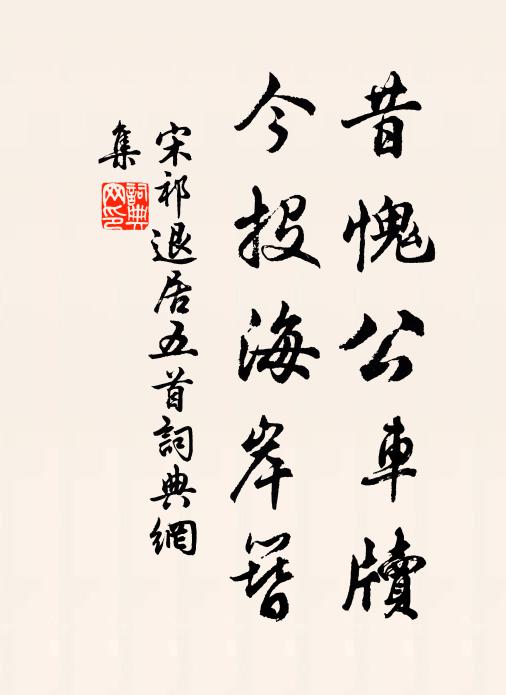 昔愧公車牘
今投海岸簪
宋祁退居五首詞典網
集
詞典網印